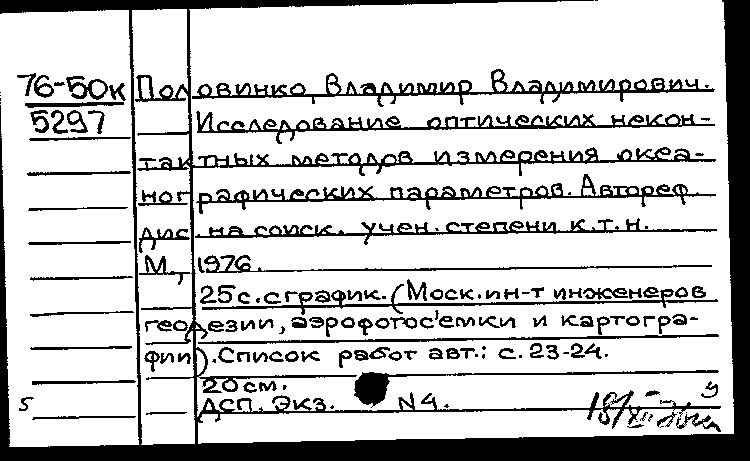 76-50к Половинко, Владимир Владимирович.
5297 Исследование оптических некон-
тактных методов измерения океа-
нографических параметров. Автореф.
дис. на соиск. учен. степени к.т.н.
М., 1976.
25с. с график. (Моск. ин-т инженеров
геодезии, аэрофотос'емки и картогра-
фии). Список работ авт.: с. 23-24.
20 см.
5 ДСП. Экз. N4.
18/XII